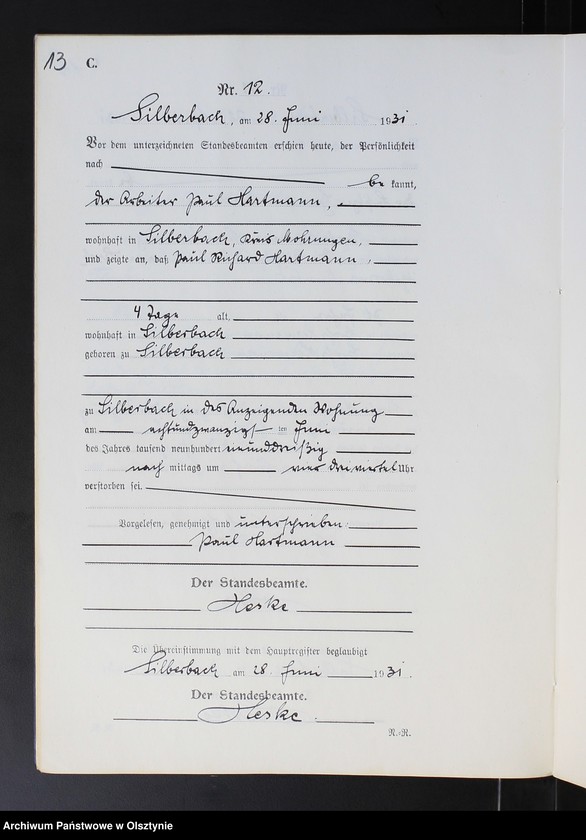 13
C.
Nr. 12.
Silberbach, am 28. Juni 1931
Vor dem unterzeichneten Standesbeamten erschien heute, der Persönlichkeit
nach
be kannt,
der Arbeiter Paul Hartmann,
wohnhaft in Silberbach, Kreis Mohrungen,
und zeigte an, daß Paul Richard Hartmann,
4 Tage alt,
wohnhaft in Silberbach
geboren zu Silberbach
zu Silberbach in des Anzeigenden Wohnung
am achtundzwanzigsten Juni
des Jahres tausend neunhundert einunddreißig
nach mittags um vier dreiviertel Uhr
verstorben sei.
Vorgelesen, genehmigt und unterschrieben.
Paul Hartmann
Der Standesbeamte.
Heske
Die Übereinstimmung mit dem Hauptregister beglaubigt
Silberbach am 28. Juni 1931.
Der Standesbeamte.
Heske.
R.-R.
Archiwum Państwowe w Olsztynie